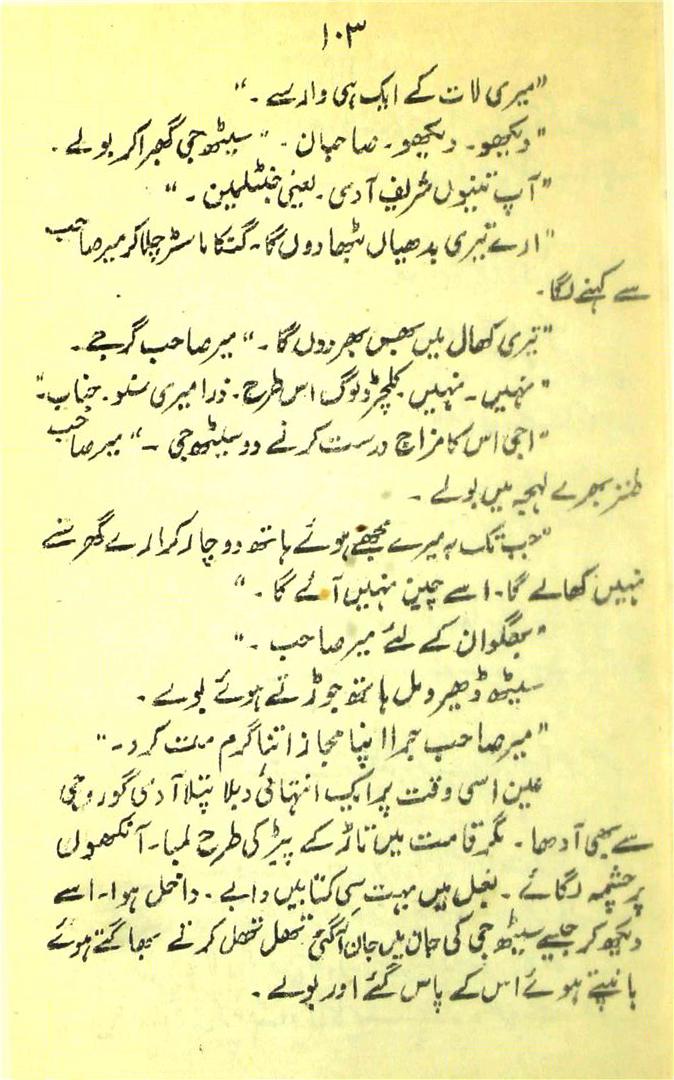 ۱۰۳
"میری لات کے ایک ہی وار سے۔"
"دیکھو۔ دیکھو۔ صاحبان۔" سیٹھ جی گھبرا کر بولے۔
"آپ تینوں شریف آدمی۔ یعنی جنٹلمین۔"
"ارے تیری بدھیاں بٹھا دوں گا۔ گتکا ماسٹر چلا کر میر صاحب
سے کہنے لگا۔
"تیری کھال میں بھس بھر دوں گا۔" میر صاحب گرجے۔
"نہیں۔ نہیں۔ کلچرڈ لوگ اس طرح۔ ذرا میری سنو۔ جناب۔"
"اجی اس کا مزاج درست کرنے دو سیٹھ جی۔" میر صاحب
طنز بھرے لہجہ میں بولے۔
"جب تک یہ میرے مجھے ہوئے ہاتھ دو چار کرارے گھرسنے
نہیں کھالے گا۔ اسے چین نہیں آئے گا۔"
"بھگوان کے لئے میر صاحب۔"
سیٹھ ڈھیرو مل ہاتھ جوڑتے ہوئے بولے۔
"میر صاحب جرا اپنا مجاز اتنا گرم مت کرو۔"
عین اسی وقت پر ایک انتہائی دبلا پتلا آدمی گورو جی
سے بھی آدھا۔ مگر قامت میں تاڑ کے پیڑ کی طرح لمبا۔ آنکھوں
پر چشمہ لگائے۔ بغل میں بہت سی کتابیں دابے۔ داخل ہوا۔ اسے
دیکھ کر جیسے سیٹھ جی کی جان میں جان آگئی تھل تھل کرنے بھاگتے ہوئے
ہانپتے ہوئے اس کے پاس گئے اور بولے۔